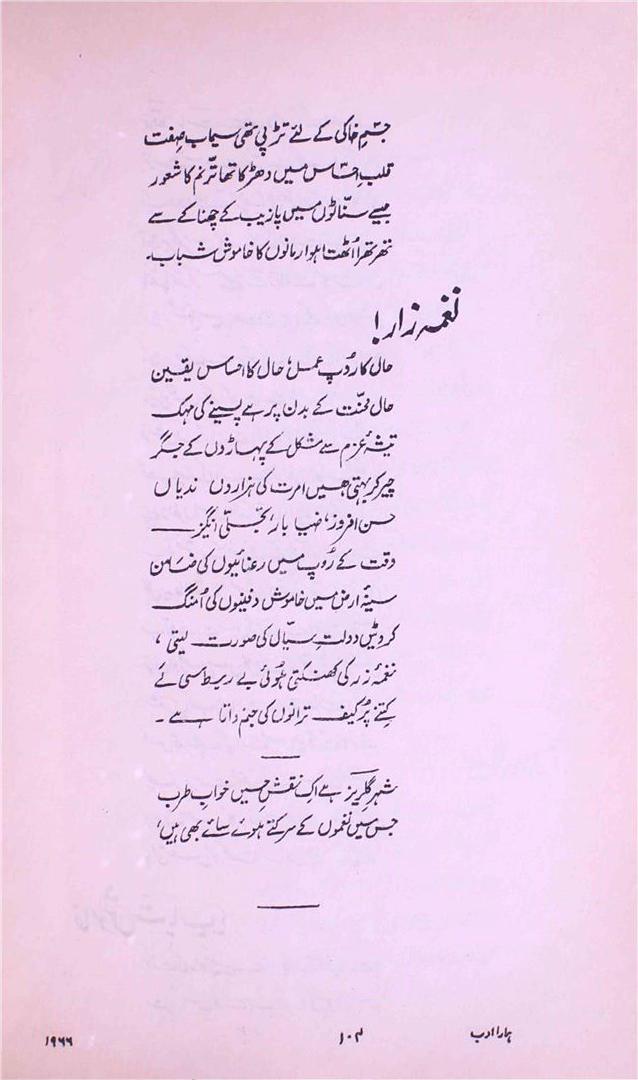 جسمِ خاکی کے لئے تڑپی تھی سیماب صفت
قلبِ احساس میں دھڑکا تھا ترنّم کا شعور
جیسے سنّاٹوں میں پازیب کے چھناکے سے
تھرتھرا اُٹھتا ہو ارمانوں کا خاموش شباب۔
نغمہ زار!
حال کا رُوپ عمل، حال کا احساس یقین
حال محنت کے بدن پر ہے پسینے کی مہک
تیشۂ عزم سے مشکل کے پہاڑوں کے جگر
چیر کر بہتی ہیں امرت کی ہزاروں ندیاں
حسن افروز، ضیا بار، تجلّی انگیز ــــ
وقت کے رُوپ میں رعنائیوں کی ضامن
سینۂ ارض میں خاموش دفینوں کی اُمنگ
کروٹیں دولتِ سیّال کی صورت لیتی،
نغمۂ زر کی کھنکتی ہوئی بے ربط سی لَے
کتنے پُرکیف ترانوں کی جنم داتا ہے۔
شہرِ گلریز ہے اِک نقشِ حسیں خوابِ طرب
جس میں نغموں کے سرکتے ہوئے سائے بھی ہیں،
ہمارا ادب
۱۰۴
۱۹۶۶